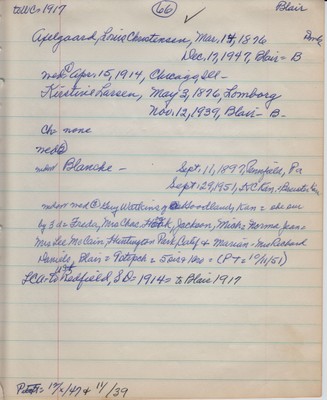 to WC= 1917 (66) Blair
Apelgaard, Louis Christensen, Mar. 14, 1876
Dec. 17, 1947, Blair = B
med① Apr. 15, 1914, Chicago, Ill -
Kirstine Lassen, May 3, 1876, Lomborg
Nov. 12, 1939, Blair - B -
Ch= none
med②
Blanche - Sept. 11, 1897, Pa
Sept 29, 1951,
med① Guy Watkins of Woodlands, Kan = she sur
by 3 d = Freda, Mrs Chas. Jackson, Mich = Norma Jean =
Mrs Lee McCain, Huntington Park, Calif & Marian = Mrs Richard
Daniels, Blair = 9 = 5 = (PT = 10/11/51)
LCA = to Redfield, SD = 1914 = to Blair 1917
= 12/ /47 & 11/ /39